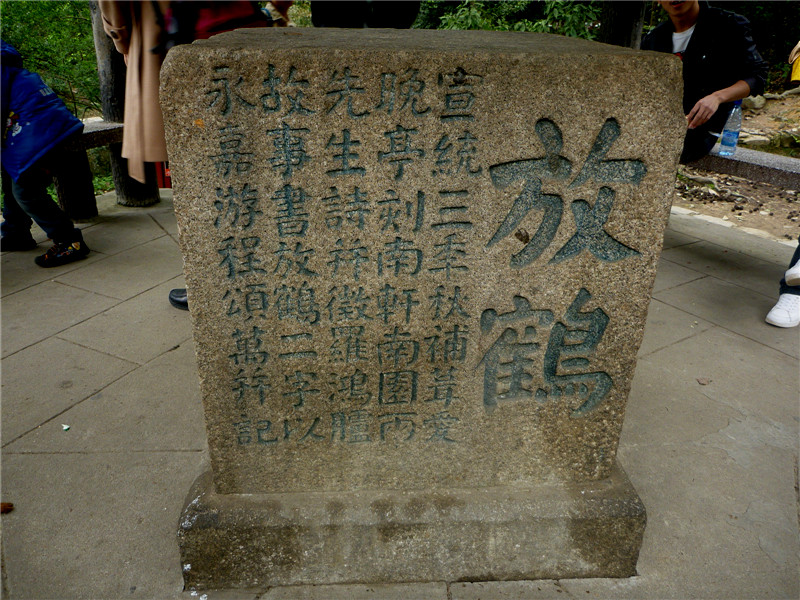 放鶴
宣統三年秋補葺愛
晚亭刻南軒南園两
先生詩并徵羅鴻臚
故事書放鶴二字以
永嘉游程頌萬并記